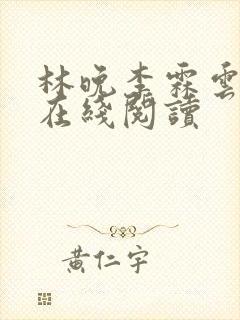 林晚李霖雲
在綫閱讀
黃仁宇